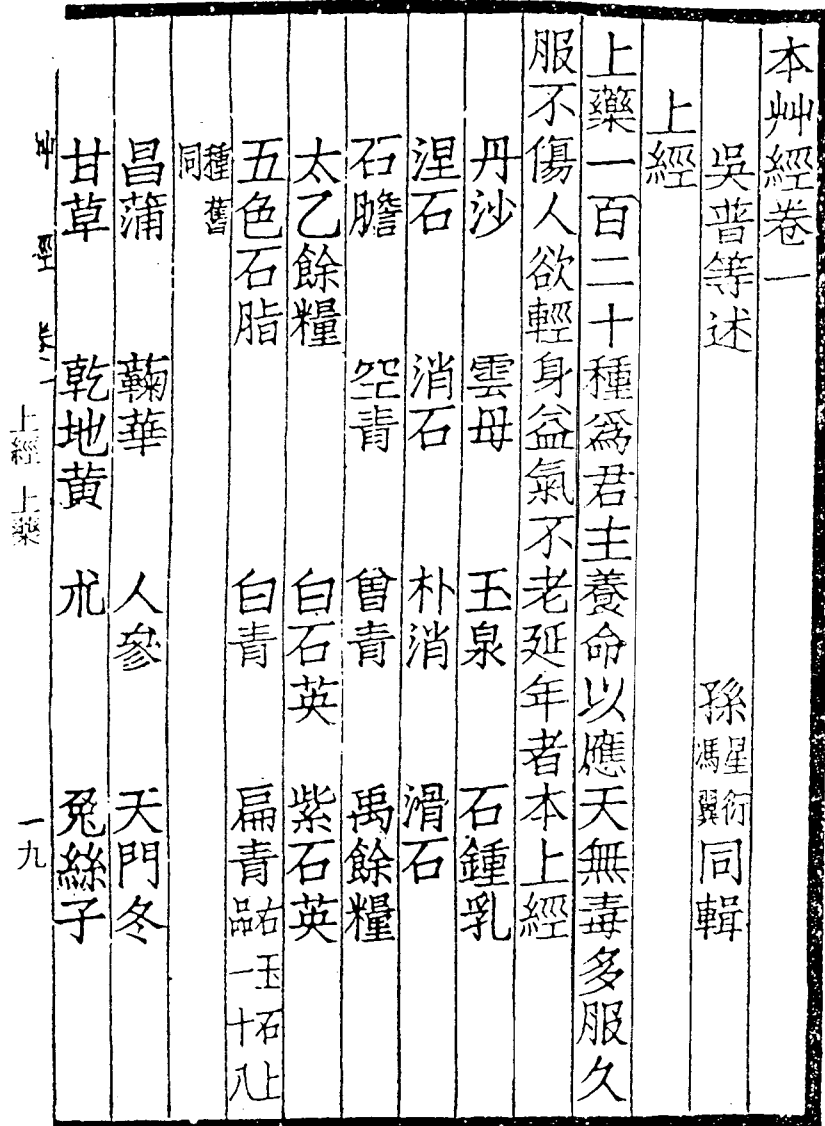 本艸經卷一
吳普等述　孫星衍馮翼同輯
上經
上藥一百二十種爲君主養命以應天無毒多服久
服不傷人欲輕身益氣不老延年者本上經
丹沙　雲母　玉泉　石鍾乳
涅石　消石　朴消　滑石
石膽　空青　曾青　禹餘糧
太乙餘糧　白石英　紫石英
五色石脂　白青　扁青右玉石上品一十八
種舊同
昌蒲　鞠華　人參　天門冬
甘草　乾地黃　朮　兔絲子
經 卷一
上經 上藥
一九